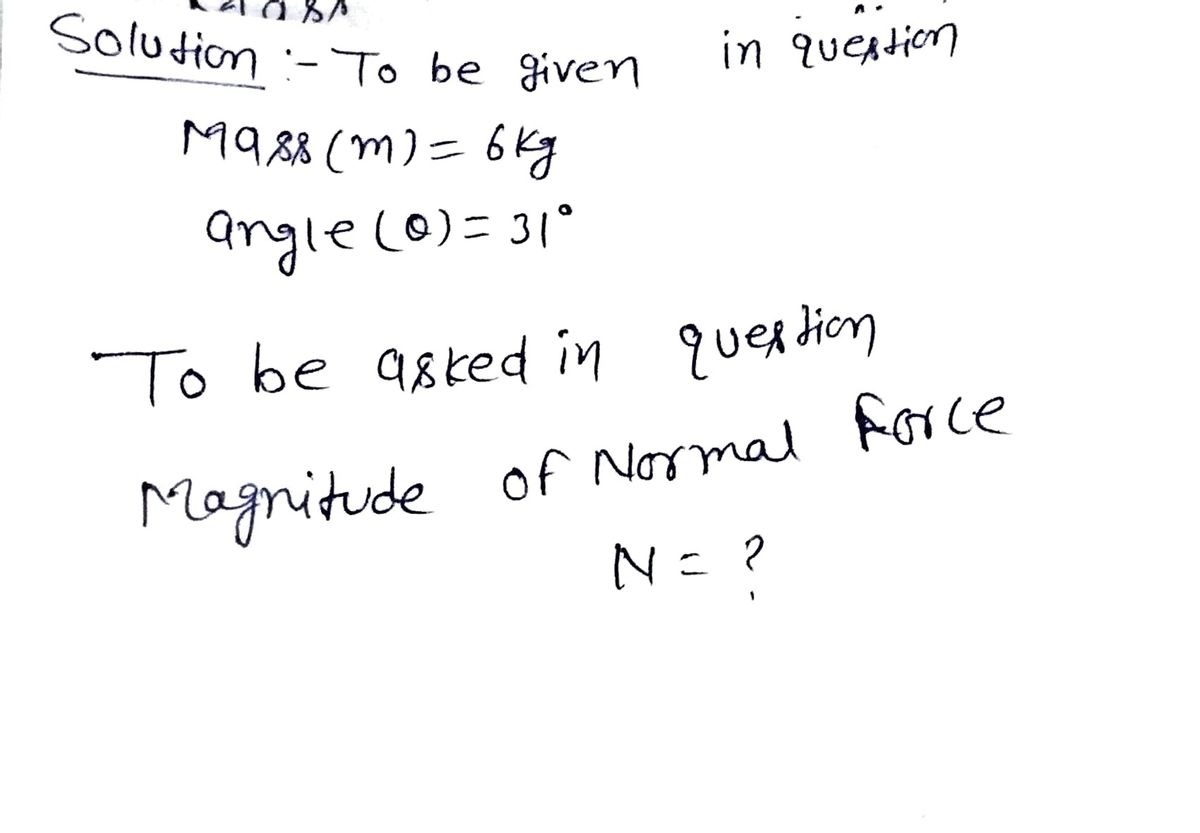 Solution :- To be given in question
Mass (m) = 6 kg
angle (θ) = 31°
To be asked in question
Magnitude of Normal Force
N = ?